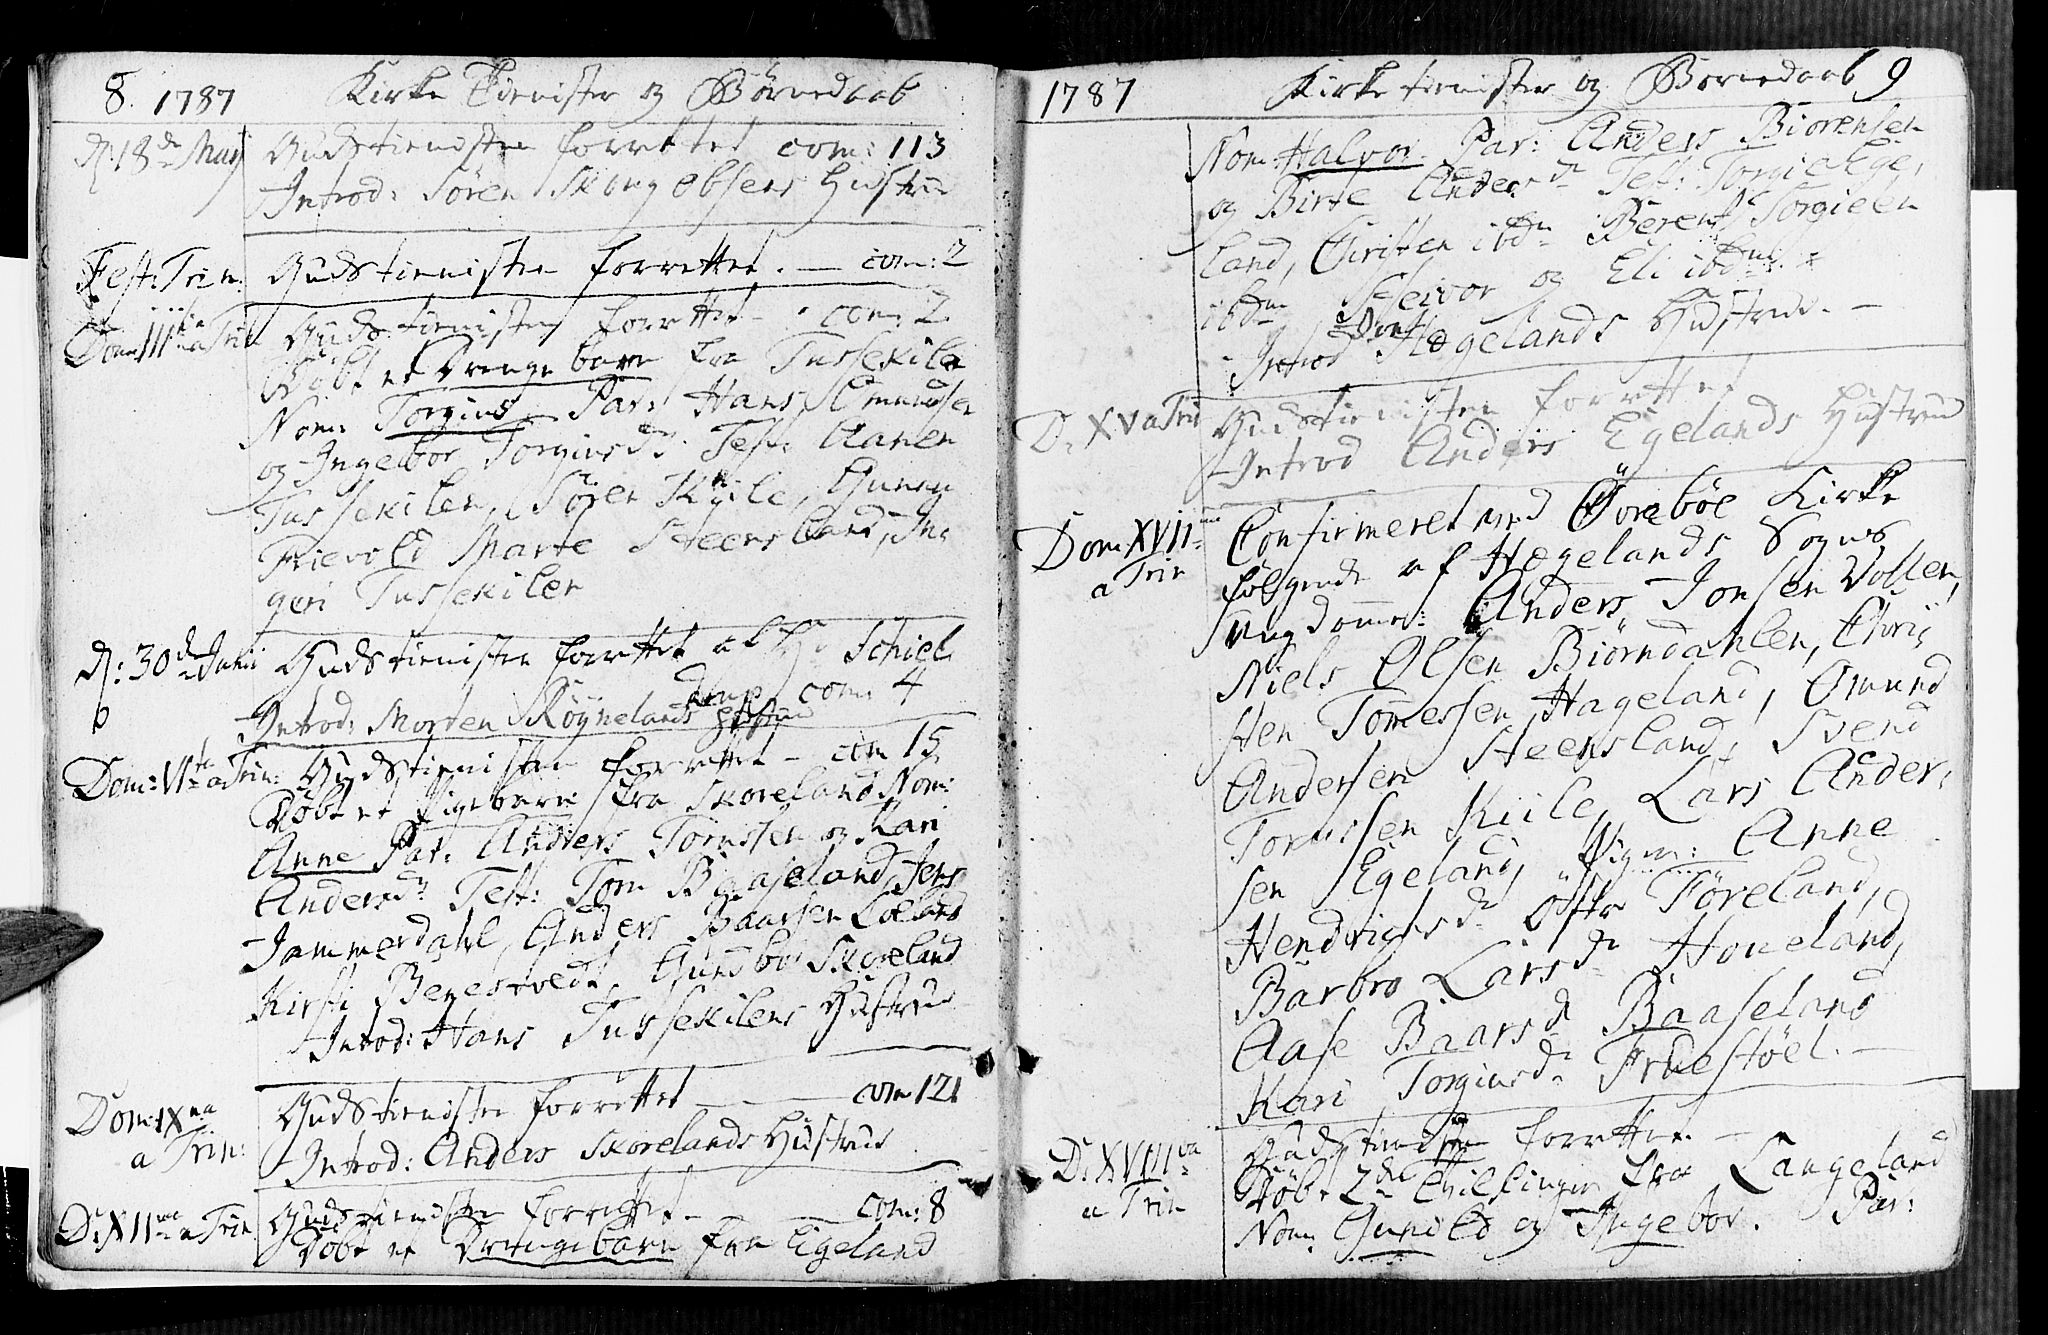 8. 1787 Kirke Tienister og Børnedaab
d: 18de Maij Gudstienisten forrettet com: 113
Introd: Søren Skougebsens Hustrue
Fest: Trin: Gudstienisten forrettet. — com: 2
Dom: IIItia a Trin Gudstienisten forrettet - com: 2
Døbt et Drengebarn fra Tussekilen
Nom: Torgius Par: Hans Omundsen
og Ingebor Torgiusd: Test: Aanen
Tussekilen, Søren Kiile, Gunnu
Frievold Marte Steensland, In¿
geri Tussekilen
d: 30de Junii Gudstienisten forrettet af Hr Schiel¿
drup com: 4
Introd: Morten Røynelands Hustrue
Dom: VIta a Trin: Gudstienisten forrettet - com 15
Døbt et Pigebarn fra Skoreland Nom:
Anne Par: Anders Tomssen og Kari
Andersdr Test: Tom Baaseland, Jens
Jammerdahl, Anders Baarsen
Kirsti Begestvedt, Gundbor Skoreland
Introd: Hans Tussekilens Hustrue
Dom: IXna a Trin: Gudstienisten forrettet — — com 121
Introd: Anders Skorelands Hustrue
D: XIIma a Trin Gudstienisten forrettet — — com: 8
Døbt et Drengebarn fra Egeland
1787 Kirke tienister og Børnedaab 9
Nom: Halvor Par: Anders Biorensen
og Birte Andersdr Test: Torgie Ege¿
land, Christen ibdm Berent Torgieen
ibdm Seivor og Eli ibdm.
Introd Hegelands Hustrue. —
D: XV a Trin Gudstienisten forrettet
Introd Anders Egelands Hustrue
Dom XVIIma Confirmeret ved Øvrebøe Kirke
a Trin følgende af Hegelands Sogns
ungdomme: Anders Jonsen Vollen,
Niels Olsen Biørndahlen, Chri¿
sten Tomessen Hageland, Omund
Andersen Steensland, Svend
Tomessen Kiile, Lars Ander¿
sen Egeland, Piger: Anne
Hendrichsdr Øftre Føreland,
Barbro Larsdr Houeland,
Aase Baarsdr Baaseland
Kari Torgiusdr Fruestøel. —
D: XVIIIva Gudstienisten forrettet. —
a Trin Døbt 2de Tvillinger fra Langeland
Nom: Gunild og Ingebor. Par: